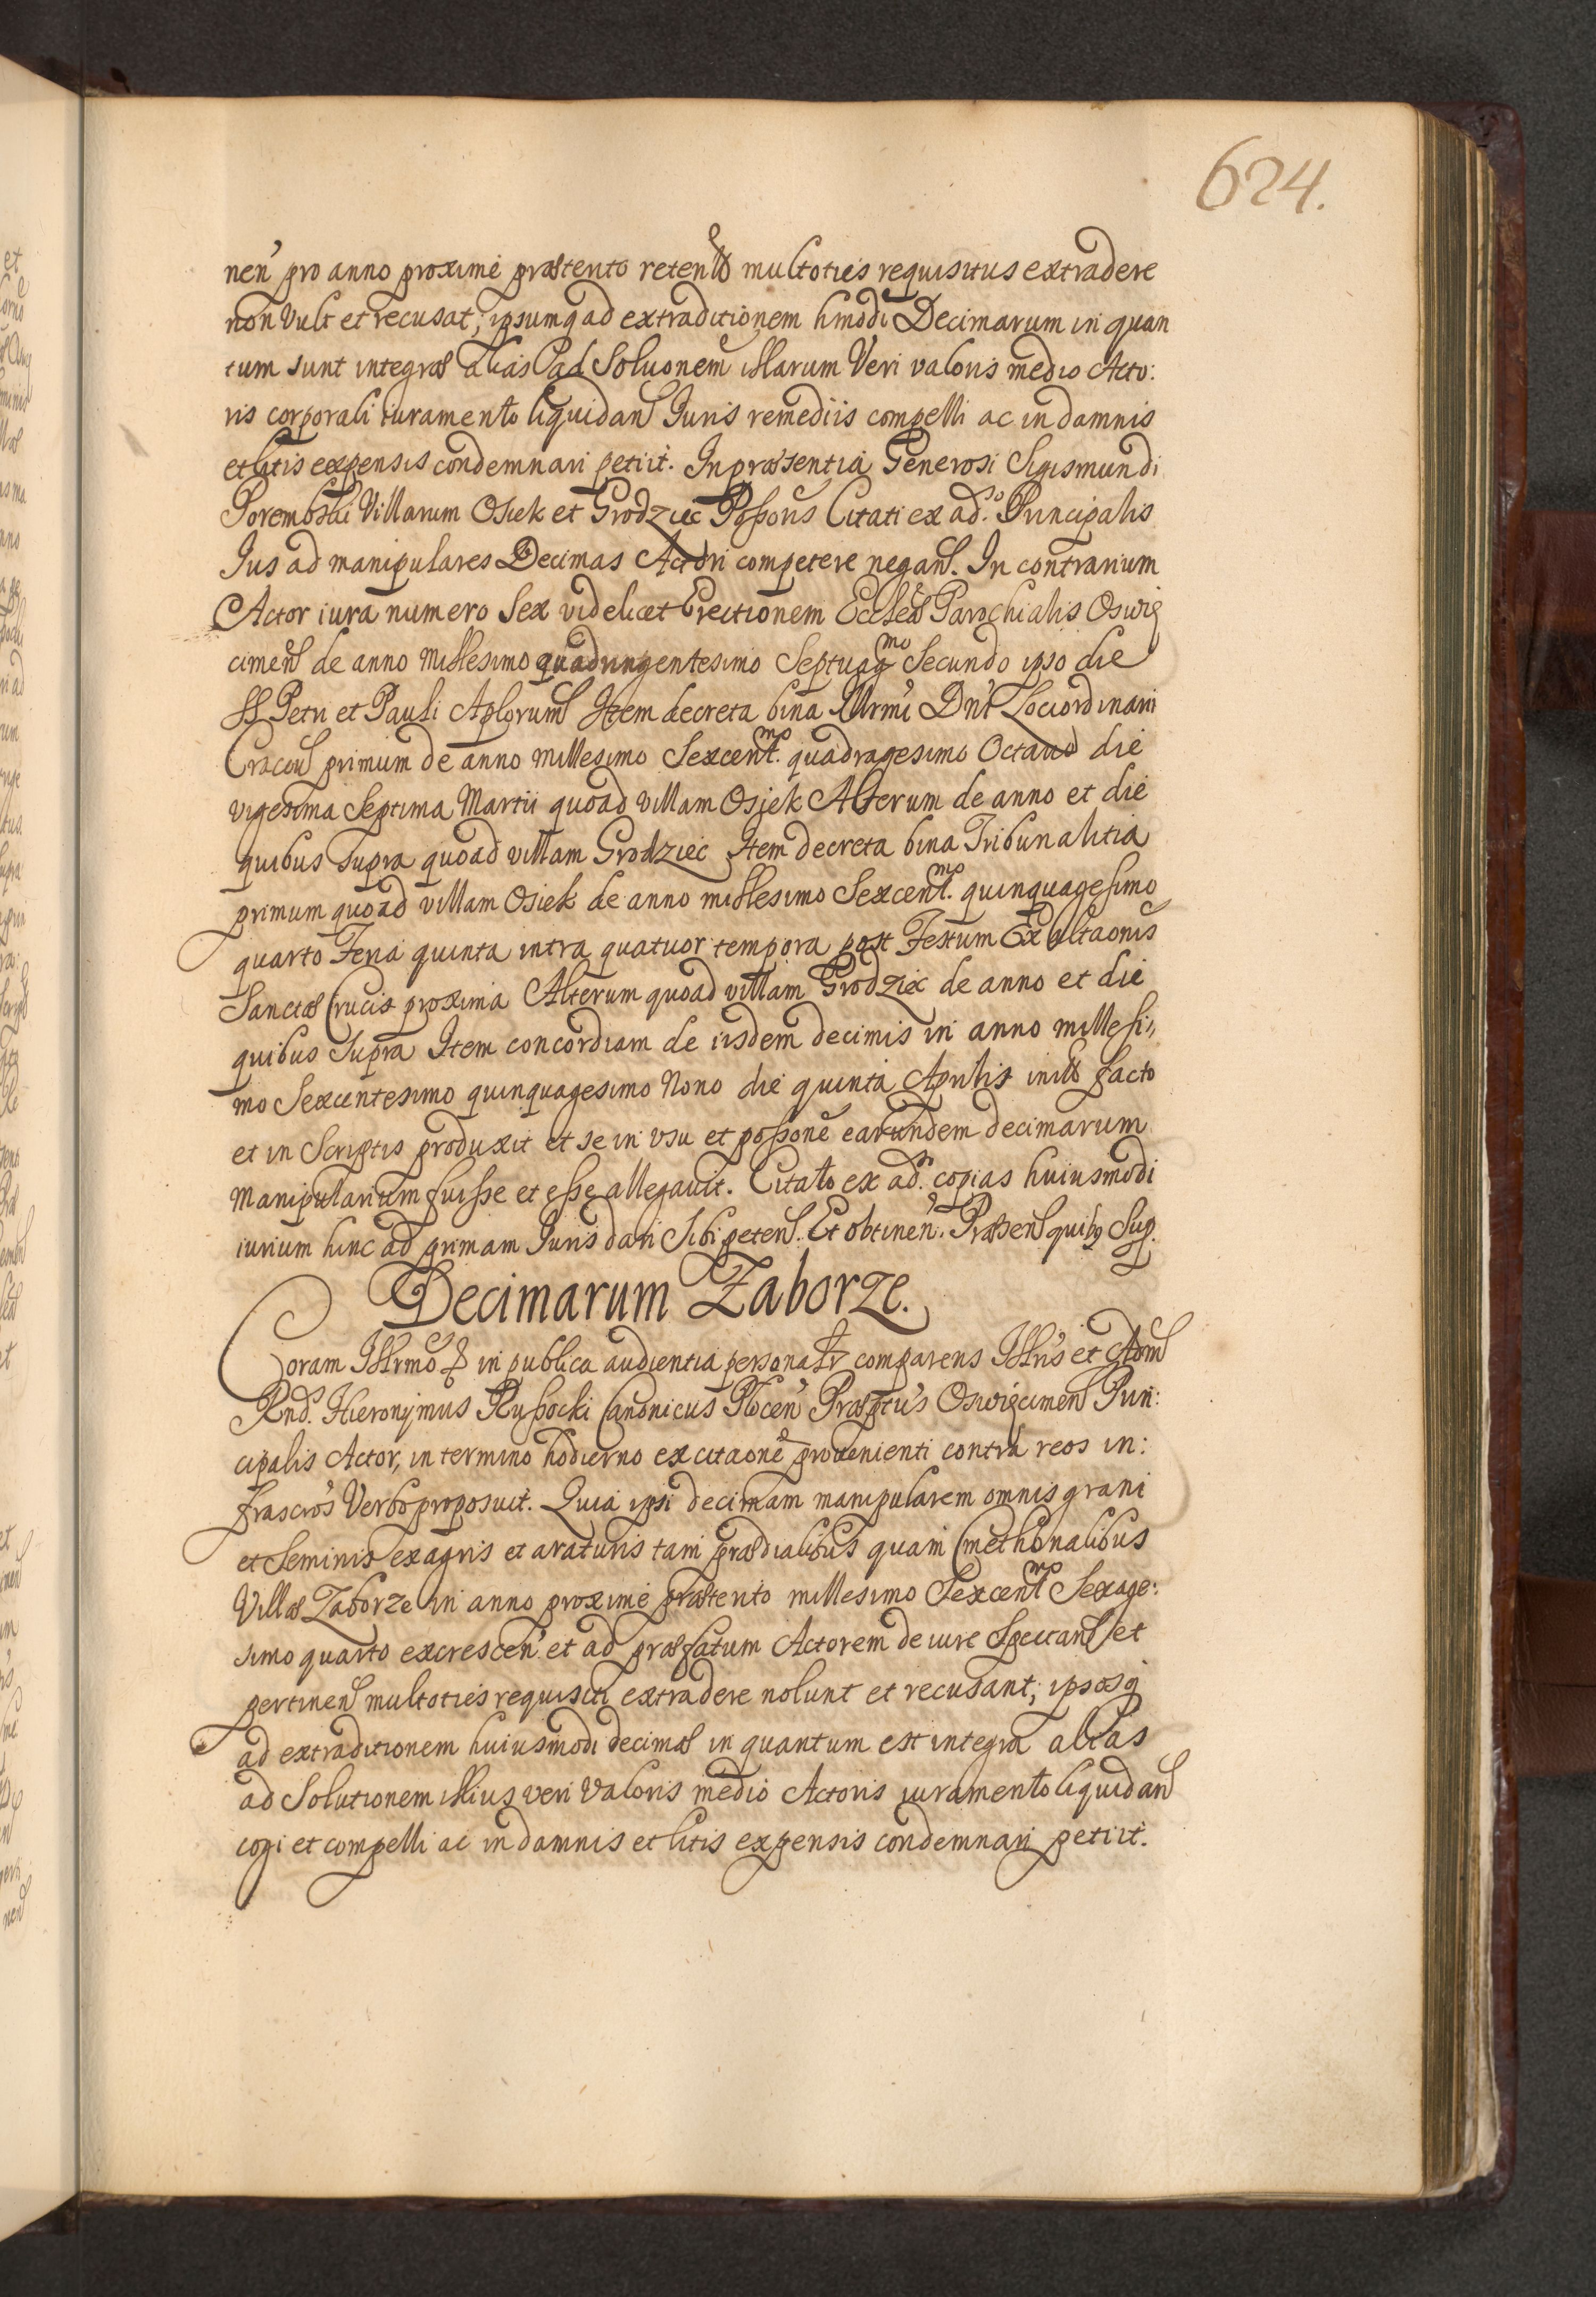 624.
nen̄ pro anno proximè præterito retent̃ multoties requisitus extradere
non Vult et recusat; ipsumq̃ ad extraditionem hmõdi Decimarum in quan
tum sunt integræ alias ad Soluõnem illarum Veri valoris medio Acto:
ris corporali iuramento liquidañ Juris remediis compelli ac in damnis
et litis expensis condemnari petiit. In præsentia Generosi Sigismundi
Porembski Villarum Osiek et Grodziec Poss̃oris Citati ex ad.º Principalis
Jus ad manipulares Decimas Actori competere negañ. In contrarium
Actor iura numero Sex videlicet Erectionem Ecclẽæ Parochialis Oswię
cimeñ de anno Millesimo quadringentesimo Septuag.mo Secundo ipso die
SS Petri et Pauli Aplorum Item decreta bina Illrmi Dñi Lociordinarii
Cracoũ primum de anno Millesimo Sexcent.mo quadragesimo Octavo die
vigesima Septima Martii quoad villam Osiek Alterum de anno et die
quibus Supra quoad villam Grodziec Item decreta bina Tribunalitia
primum quoad villam Osiek de anno millesimo Sexcent.mo quinquagesimo
quarto Feria quinta intra quatuor tempora post Festum Exaltaõnis
Sanctæ Crucis proxima Alterum quoad villam Grodziec de anno et die
quibus Supra Item concordiam de iisdem decimis in anno millesi,,
mo Sexcentesimo quinquagesimo Nono die quinta Aprilis facto
et in Scriptis produxit et se in vsu et poss̃one earundem decimarum
Manipularium fuisse et esse allegavit. Citato ex ad. copias huiusmodi
iurium hinc ad primam Juris dari Sibi peteñ. Et obtineñ. Præseñ quibq Sup.
Decimarum Zaborze.
Coram Illrmo in publica audientia personalr̃ comparens Illris et Adm̃
Rnd. Hieronymus Russocki Canonicus Plocen̄ Præptus Oswięcimeñ Prin:
cipalis Actor, in termino hodierno ex citaõne provenienti contra reos in:
frascr̃os Verbo proposuit. Quia ipsi decimam manipularem omnis grani
et Seminis ex agris et araturis tam prædialibus quam Cmethonalibus
Villæ Zaborze in anno proximè præterito millesimo Sexcent.mo Sexage:
simo quarto excrescen̄ et ad præfatum Actorem de iure Spectañ et
pertineñ multoties requisiti extradere nolunt et recusant; ipsosq̃
ad extraditionem huiusmodi decimæ in quantum est integra alias
ad Solutionem illius veri Valoris medio Actoris iuramento liquidañ
cogi et compelli ac in damnis et litis expensis condemnari petiit.